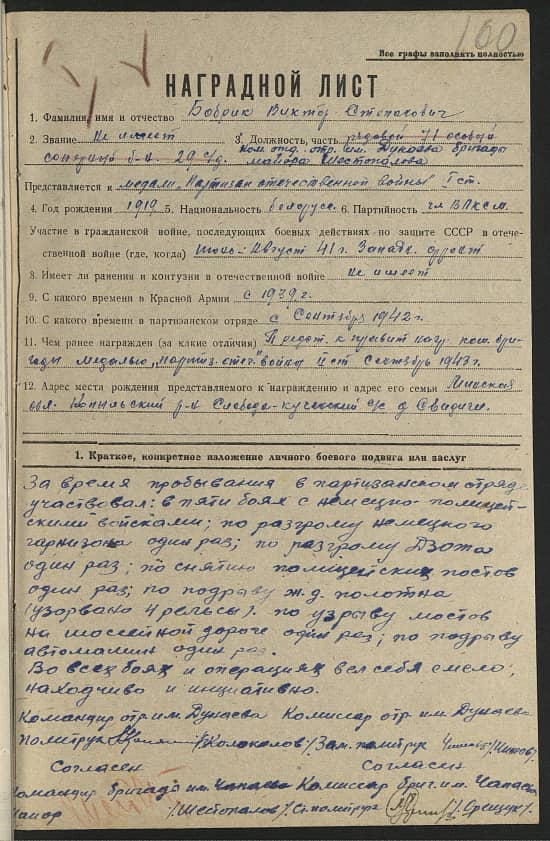 100
Все графы заполнять полностью
НАГРАДНОЙ ЛИСТ
1. Фамилия, имя и отчество Бобрик Виктор Степанович
2. Звание Не имеет 3. Должность, часть рядовой 71 особой
ком. отд. отр. им. Дунаева бригады
б-н 29 с/д. майора Шестопалова
Представляется к медали „Партизан отечественной войны" I ст.
4. Год рождения 1919 5. Национальность белорус 6. Партийность чл ВЛКСМ.
Участие в гражданской войне, последующих боевых действиях по защите СССР в отече-
ственной войне (где, когда) Июнь-Август 41 г. Запад. фронт
8. Имеет ли ранения и контузии в отечественной войне не имеет
9. С какого времени в Красной Армии с 1939 г.
10. С какого времени в партизанском отряде с Сентября 1942 г.
11. Чем ранее награжден (за какие отличия) Предст. к правит. нагр. ком. бри-
гады медалью „партиз. отеч." война II ст Сентябрь 1943 г.
12. Адрес места рождения представляемого к награждению и адрес его семьи Минская
обл. Копыльский р-н Слобода-Кучинский с/с д Свидичи.
1. Краткое, конкретное изложение личного боевого подвига или заслуг
За время пробывания в партизанском отряде
участвовал: в пяти боях с немецко-полицей-
скими войсками; по разгрому немецкого
гарнизона один раз; по разгрому Дзота
один раз; по снятию полицейских постов
один раз; по подрыву ж.д. полотна
(узорвано 4 рельсы). по узрыву мостов
на шоссейной дороге один раз; по подрыву
автомашин один раз.
Во всех боях и операциях вел себя смело,
находчиво и инциативно.
Командир отр. им. Дунаева Комиссар отр. им. Дунаева
Политрук /Колоколов/ Зам. политрук
Согласен Согласен
Командир бригады им. Чапаева Комиссар бриг. им. Чапаева
Майор /Шестопалов/ Ст. политрук /Срещук/.